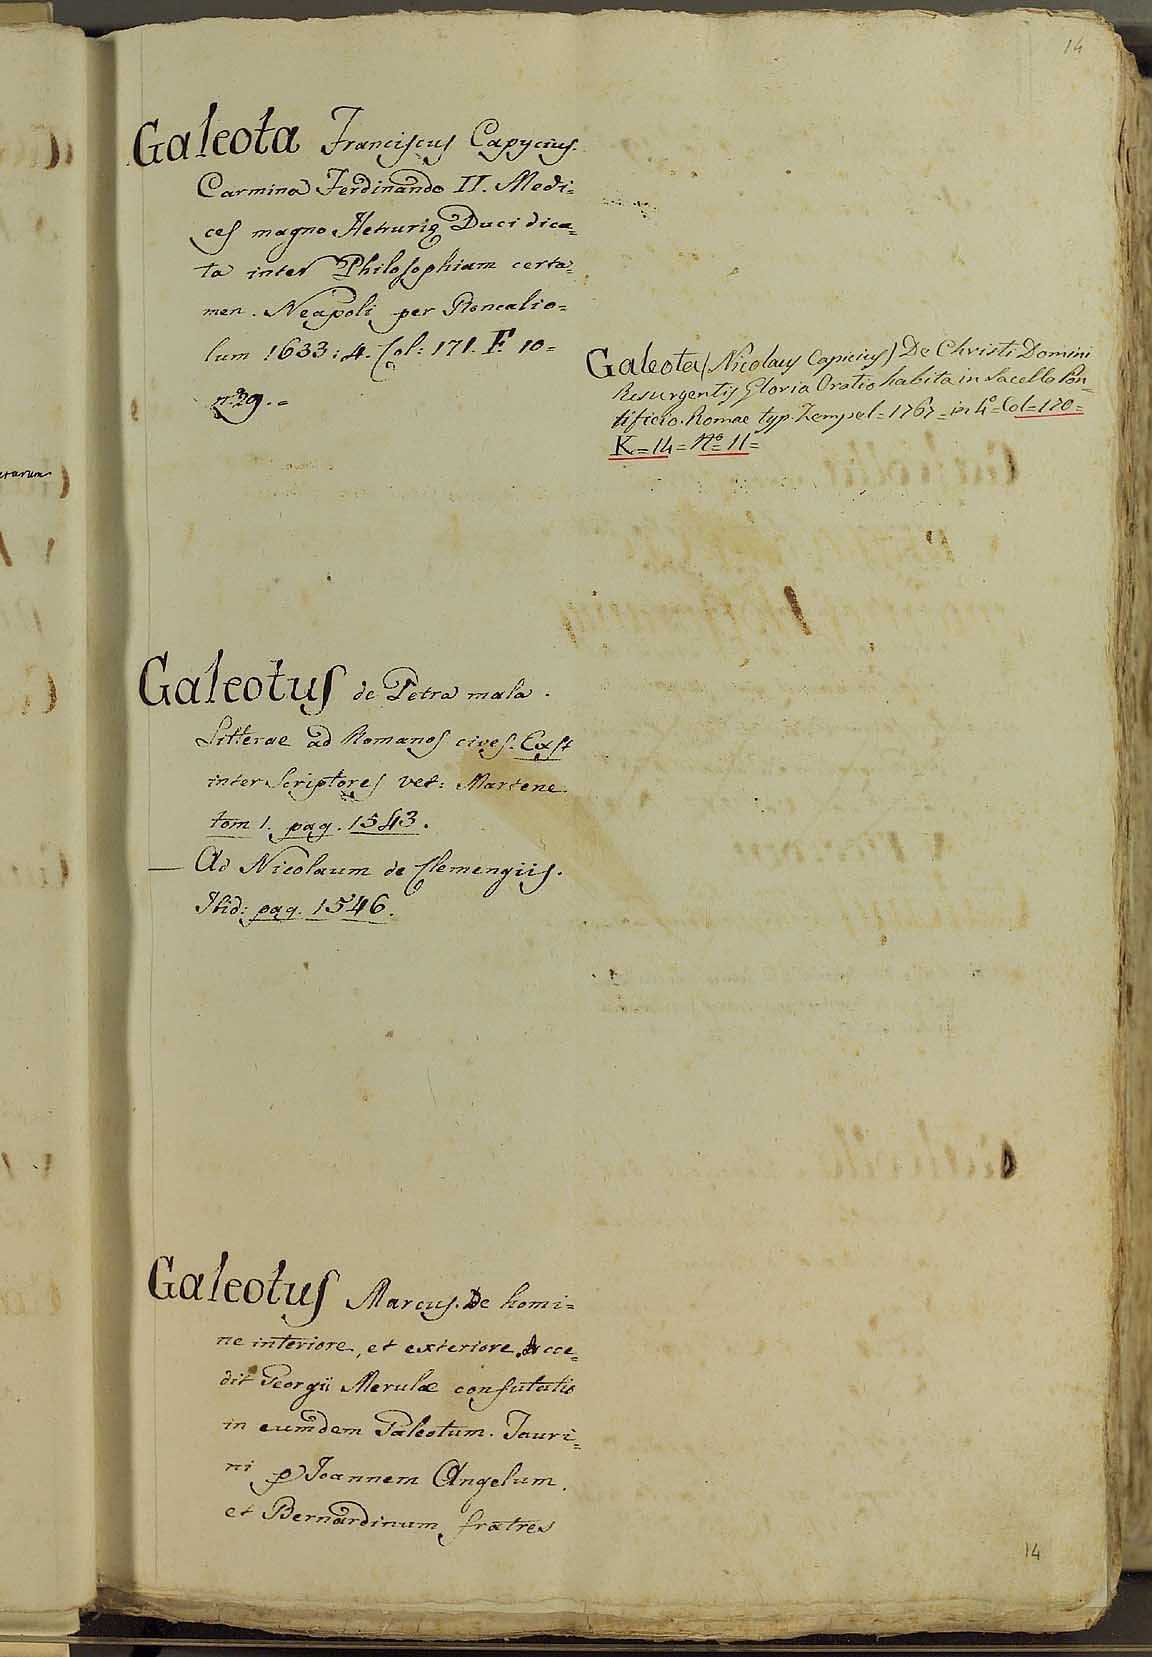 14
Galeota Franciscus Capycius.
Carmina Ferdinando II. Medi=
ces magno Hetrurię Duci dica=
ta inter Philosophiam certa=
men. Neapoli per Roncalio=
lum 1633: 4. Col: 171. F. 10=
nº 29.=
Galeota (Nicolaus Capicius) De Christi Domini
Resurgentis Gloria Oratio habita in Sacello Pon=
tificio. Romae typ. Zempel= 1767= in 4º= Col=170=
K=14= Nº= 11=
Galeotus de Petra mala.
Litterae ad Romanos cives. Exst
inter Scriptores vet: Martene
tom 1. pag. 1543.
— Ad Nicolaum de Clemengiis.
Ibid: pag. 1546.
Galeotus Marcus. De homi=
ne interiore, et exteriore. Acce=
dit Georgii Merulæ confutatio
in eumdem Galeotum. Tauri=
ni p Joannem Angelum,
et Bernardinum fratres
14